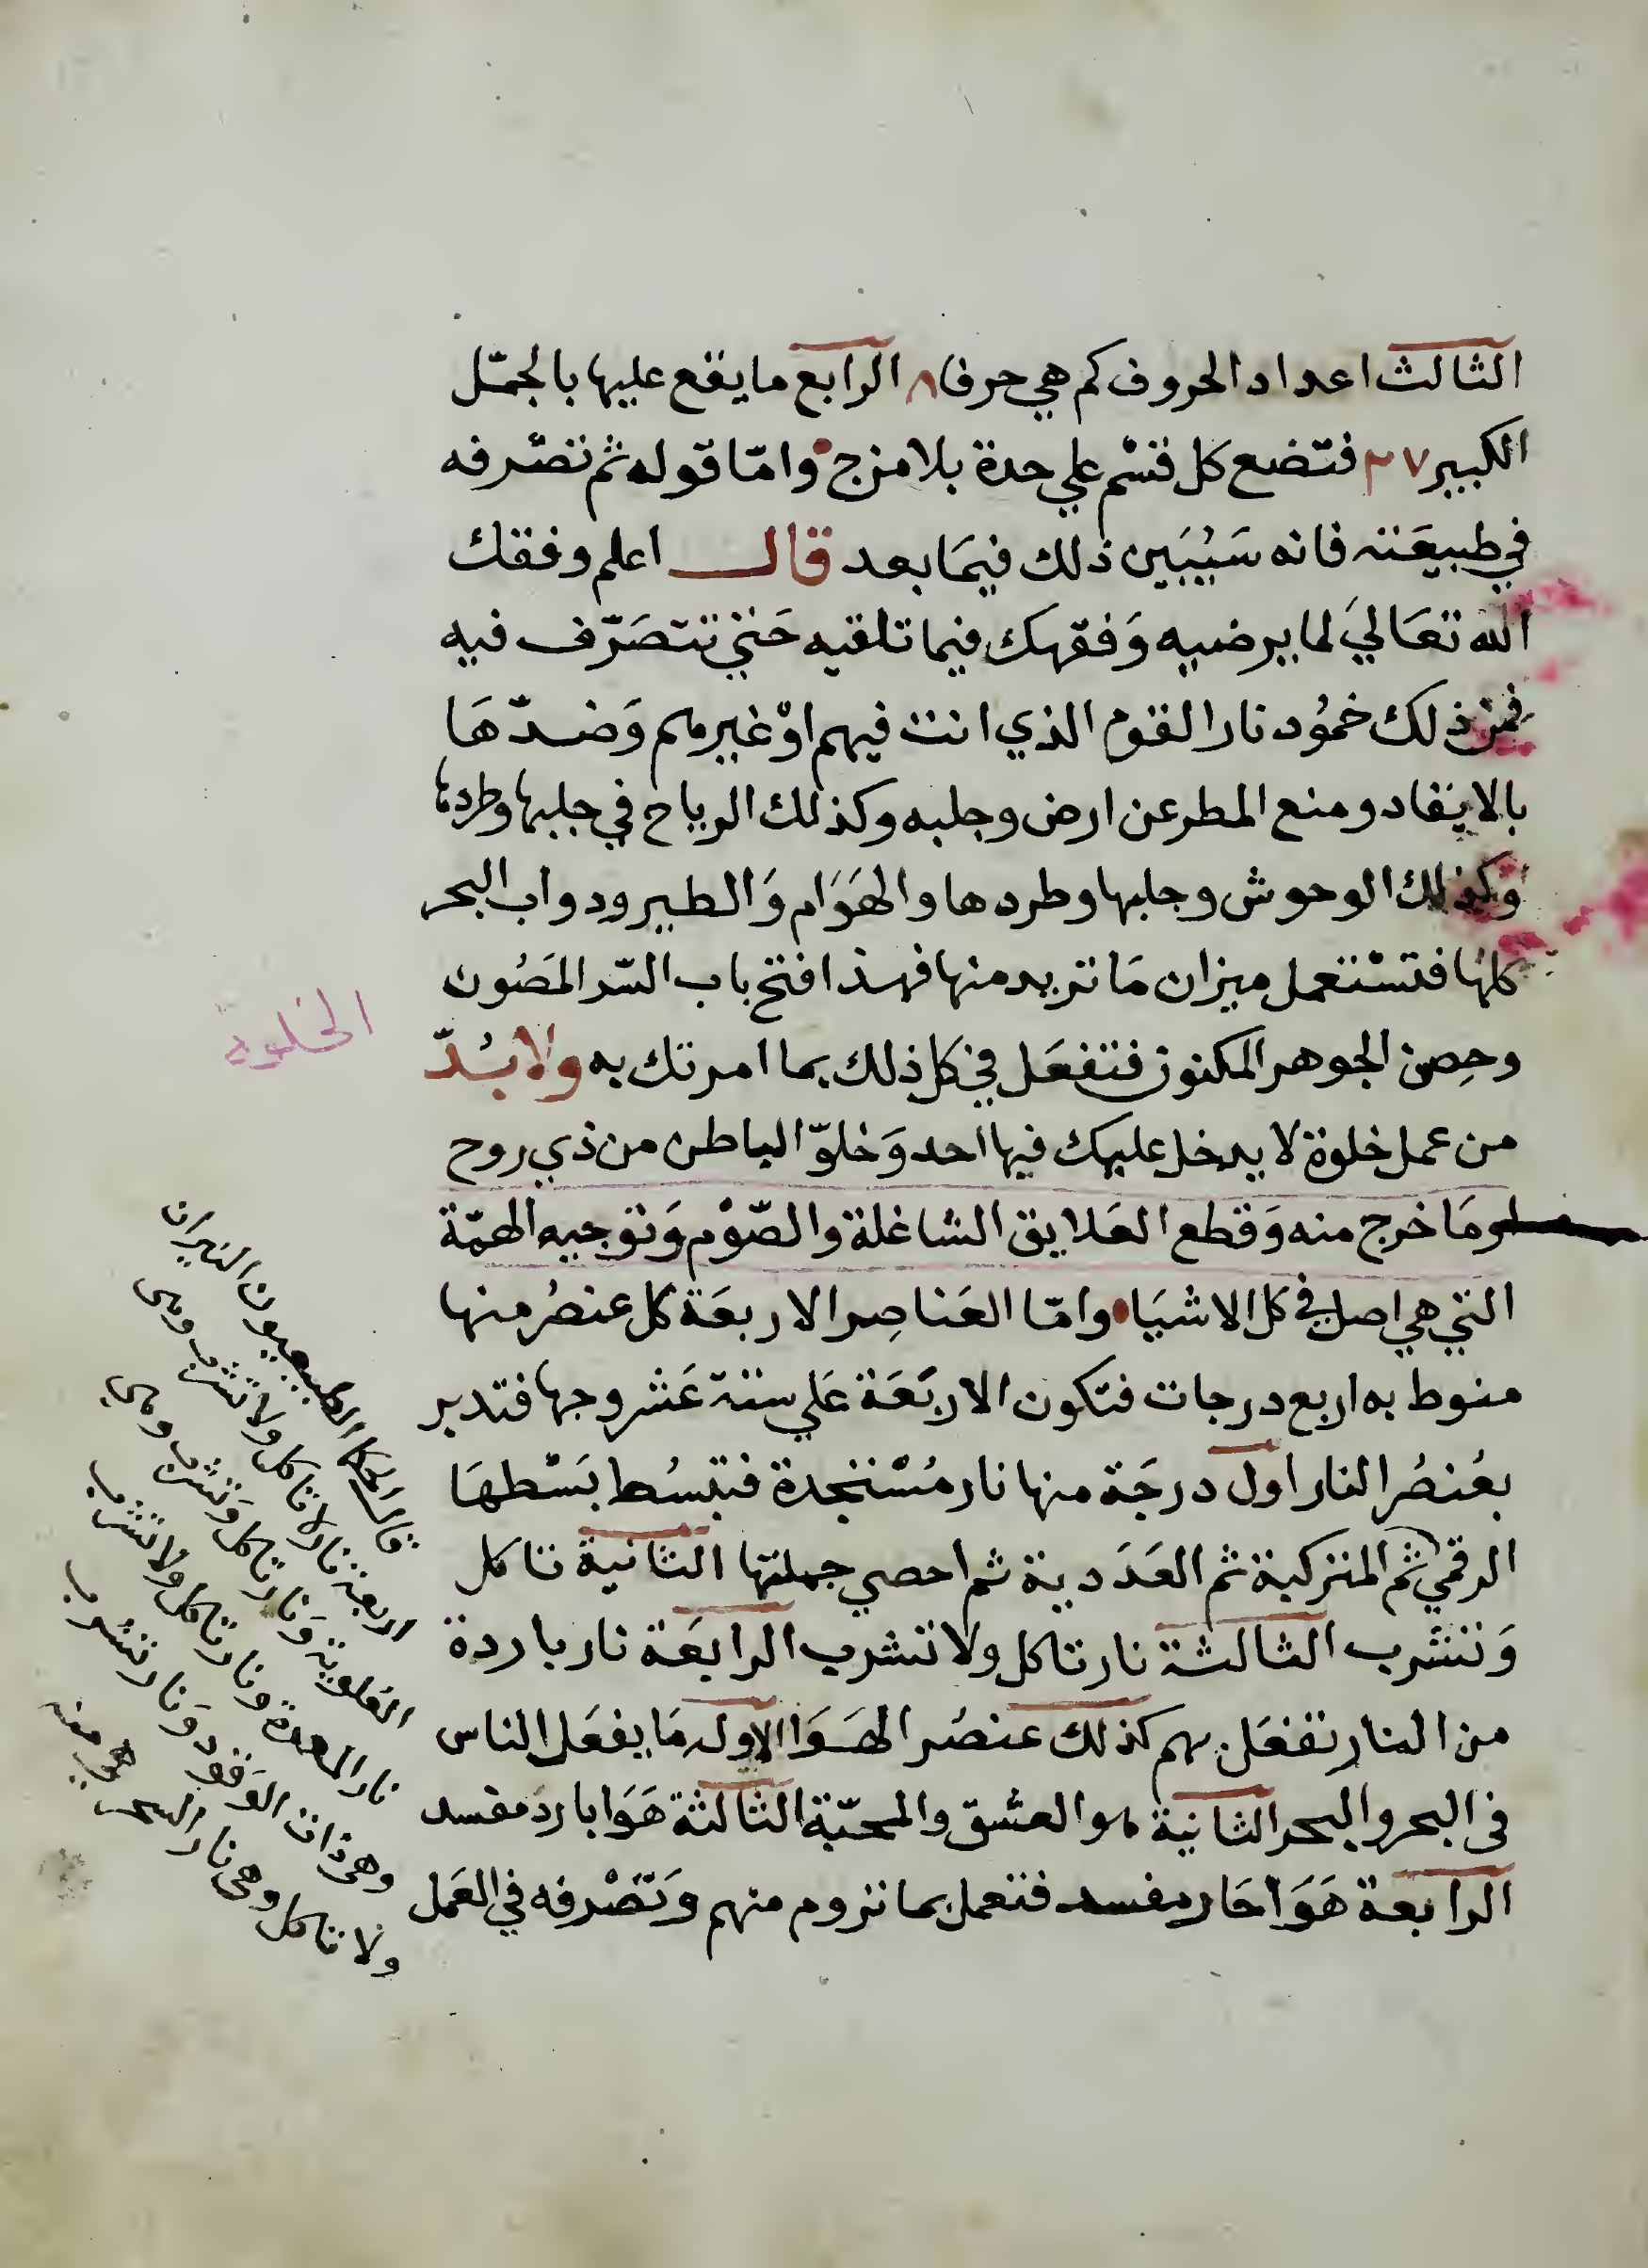 الثالث اعداد الحروف كم هي حرفا ٨ الرابع ما يقع عليها بالجمّل
الكبير ٢٧ فتضع كل قسْم علي حدة بلا مزج وامّا قوله ثم تصّرفه
في طبيعَته فانه سَيُبَين ذلك فيمَا بعد قال اعلم وفقك
الله تعَاليَ لما يرضيه وَفقهك فيما تلقيه حَتي تتصَرّف فيه
فمن ذلك خمُود نار القوم الذي انت فيهم اوْ غيرهم وَضدّهَا
بالايقاد ومنع المطر عن ارض وجلبه وكذلك الرياح في جلبها وطردها
وكذلك الوحوش وجلبها وطردها والهَوَام وَالطير ودواب البحر
كلها فتسْتعمل ميزان مَا تريد منها فهذا فتح باب السّر المَصُون
وحِصن الجوهر المكنون فتفعَل في كل ذلك بما امرتك به ولا بُدّ
من عمل خلوة لا يدخل عليك فيها احد وَخلوّ الباطن من ذي روح
ومَا خرج منه وَقطع العَلايق الشاغلة والصّوْم وَتوجيه الهمّة
التي هي اصل في كل الاشيَا وامّا العَناصِر الاربعَة كل عنصُر منها
منوط به اربع درجات فتكون الاربَعَة عَلي ستة عَشر وجها فتدبر
بعُنصُر النار اول درجَة منها نار مُسْتنجدة فتبسُط بَسْطهَا
الرقمي ثم المتركبة ثم العَدَدية ثم احصي جملتها الثانية تاكل
وَتشرب الثالثة نار تاكل ولا تشرب الرابعَة نار باردة
من النار تفعَل بهم كذلك عنصُر الهَوَا الاول مَا يفعَل الناس
في البحر والبحر الثانية هو العشق والمحبّة الثالثة هَوَا بارد مفسد
الرابعة هَوَا حَار مفسد فتعمل بما تروم منهم وَتصْرفه في العَمل
الخلوة
قال الحكما الطبيعيون النيران
اربعة نار لا تاكل ولا تشرب وهي
العُلوية وَنار تاكل وَتشرب وهي
نار المعدة ونار تاكل ولا تشرب
وهي ذات الوَقود وَنار تشرب
ولا تاكل وهي نار الشجر هو منه